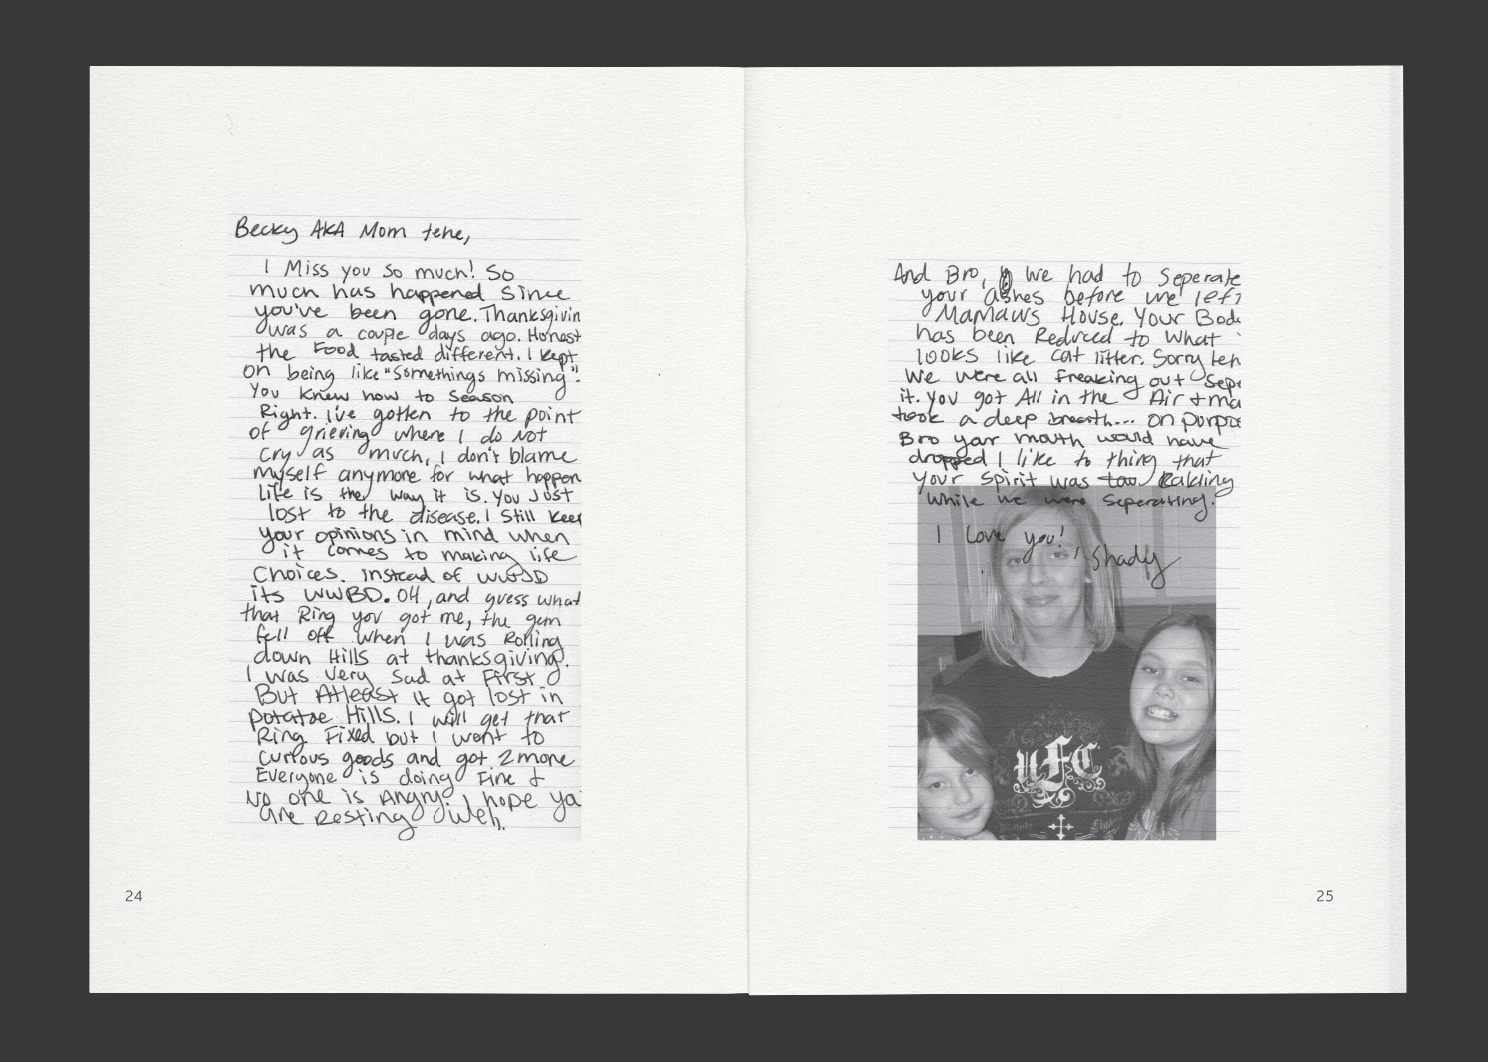 Becky AKA Mom tehe,
I Miss you so much! So
much has happened Since
you've been gone. Thanksgivin
was a couple days ago. Honest
the Food tasted different. I kept
on being like "Somethings missing".
You Knew how to Season
Right. I've gotten to the point
of grieving where I do Not
cry as much, I don't blame
myself anymore for what happen
life is the way it is. You Just
lost to the disease. I Still keep
your opinions in mind when
it comes to making life
Choices. instead of WWJD
its WWBD. OH, and guess what
that Ring you got me, the gem
fell off when I was Rolling
down Hills at thanksgiving.
I was Very Sad at First
But Atleast it got lost in
potatoe Hills. I will get that
Ring Fixed but I went to
curious goods and got 2 more
Everyone is doing Fine &
No one is Angry. I hope ya
are Resting Well.
24
And Bro, we had to Seperate
your ashes before we left
MaMaws House. Your Bod
has been Reduced to What
looks like cat litter. Sorry teh
We were all Freaking out Sepe
it. You got All in the Air + ma
took a deep breath... on purpo
Bro your mouth would have
dropped I like to thing that
your Spirit was too
While we were Seperating.
I Love you!
, Shady
UFC
25